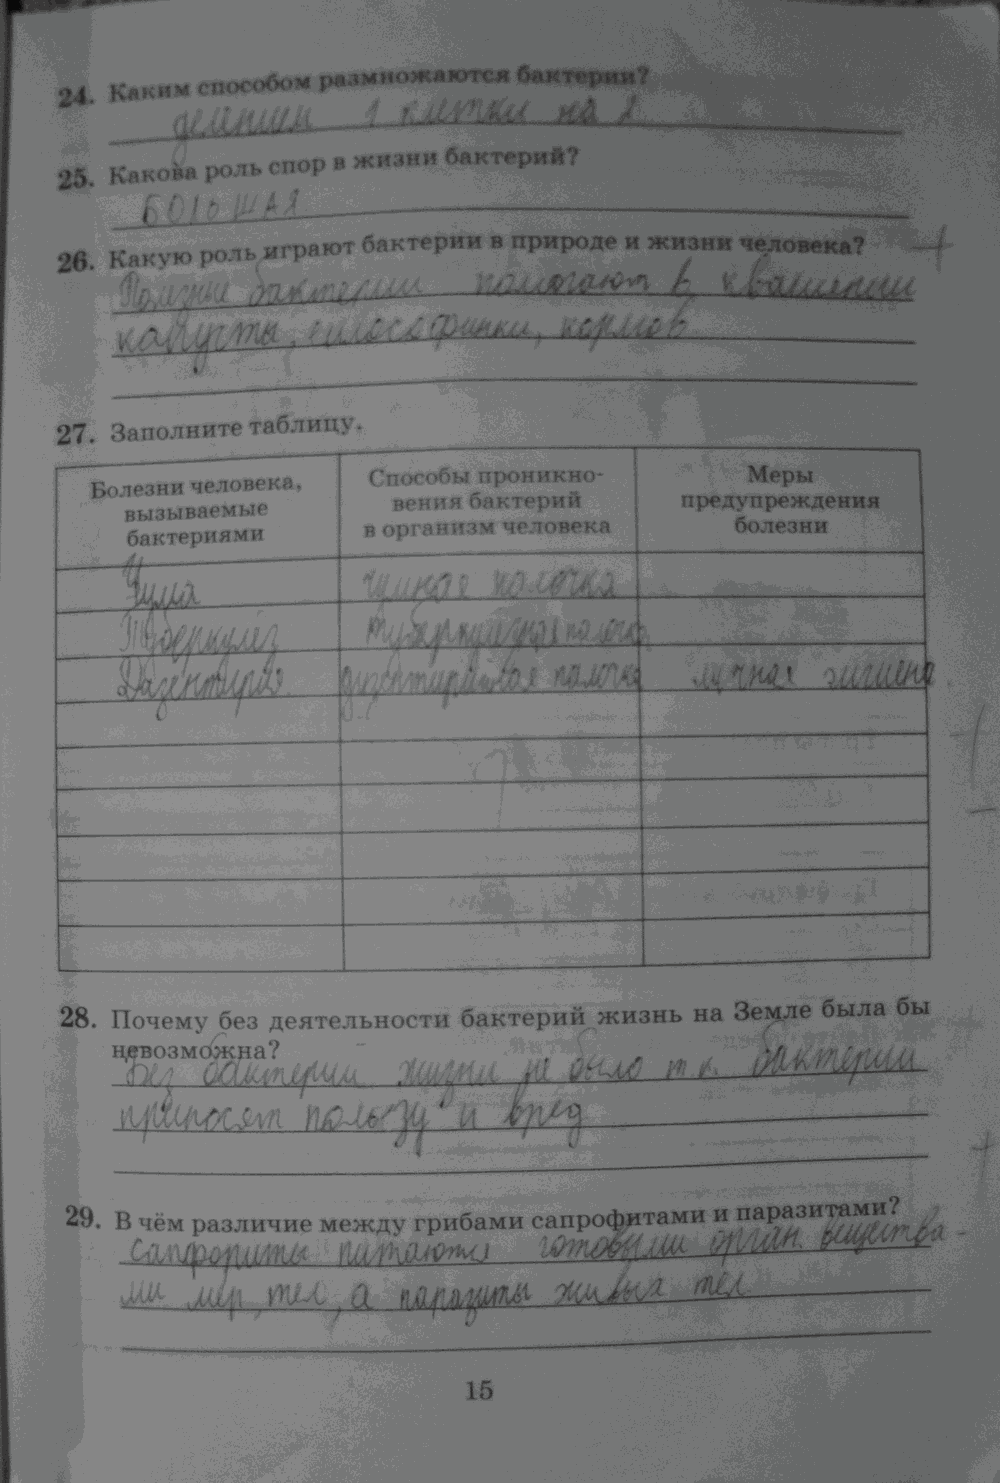 24. Каким способом размножаются бактерии?
делением 1 клетки на 2
25. Какова роль спор в жизни бактерий?
БОЛЬШАЯ
26. Какую роль играют бактерии в природе и жизни человека? +
Полезные бактерии помогают в квашении
капусты, кормов
27. Заполните таблицу.
Болезни человека,
вызываемые
бактериями
Способы проникно-
вения бактерий
в организм человека
Меры
предупреждения
болезни
Чума чумная палочка
Туберкулёз туберкулёзная палочка
Дизентирия палочка личная гигиена
28. Почему без деятельности бактерий жизнь на Земле была бы
невозможна?
Без бактерий жизни не было т.к. бактерии
приносят пользу и вред
29. В чём различие между грибами сапрофитами и паразитами?
готовыми орган. вещества-
ми мёр. тел, а паразиты живых тел
15